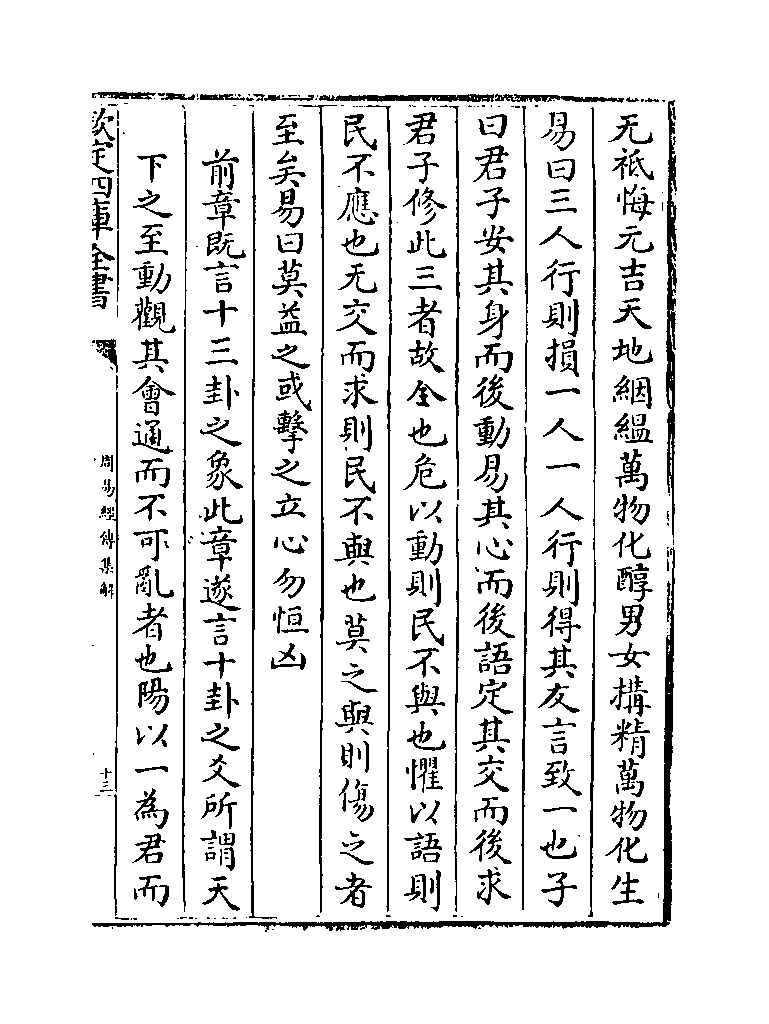 无祗悔元吉天地絪緼萬物化醇男女搆精萬物化生
易曰三人行則損一人一人行則得其友言致一也子
曰君子安其身而後動易其心而後語定其交而後求
君子修此三者故全也危以動則民不與也懼以語則
民不應也无交而求則民不與也莫之與則傷之者
至矣易曰莫益之或擊之立心勿恒凶
前章既言十三卦之象此章遂言十卦之爻所謂天
下之至動觀其會通而不可亂者也陽以一為君而
欽定四庫全書
周易經傳集解
十三